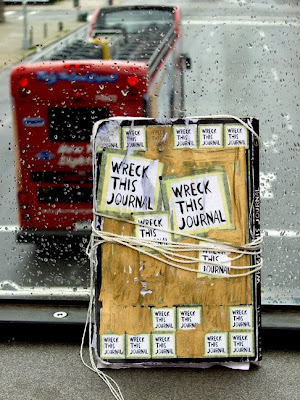 WRECK
THIS
JOURNAL
WRECK
THIS
JOURNAL
WRECK
THIS
JOURNAL
WRECK
THIS
JOURNAL
WRECK
THIS
JOURNAL
WRECK
THIS
JOURNAL
WRECK
THIS
WRECK
THIS
JOURNAL
WRECK
THIS
JOURNAL
WRECK
THIS
JOURNAL
WRECK
THIS
JOURNAL
WRECK
THIS
JOURNAL
WRECK
THIS
JOURNAL
WRECK
THIS
JOURNAL
WRECK
THIS
JOURNAL
WRECK
THIS
JOURNAL